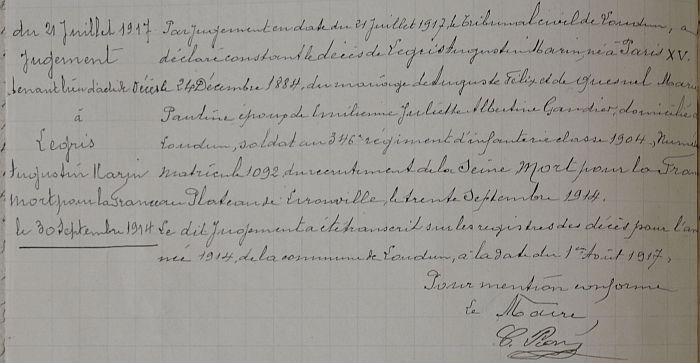 du 21 Juillet 1917
Jugement
tenant lieu d'acte de Décès
à
Legris
Augustin Marin
mort pour la France
le 30 Septembre 1914
Par jugement en date du 21 Juillet 1917, le Tribunal civil de Loudun, a
déclaré constant le décès de Legris Augustin Marin, né à Paris XV.
le 24 Décembre 1884, du mariage de Auguste Felix et de Quesnel Marie
Pauline époux de Emilienne Juliette Albertine Gandier, domicilié à
Loudun, soldat au 346e régiment d'infanterie classe 1904, Numéro
matricule 1092 du recrutement de la Seine Mort pour la Fran
au Plateau de Lironville, le trente Septembre 1914.
Le dit Jugement a été transcrit sur les registres des décès pour l'an
née 1914, de la commune de Loudun, à la date du 1er Août 1917,
Pour mention conforme
Le Maire